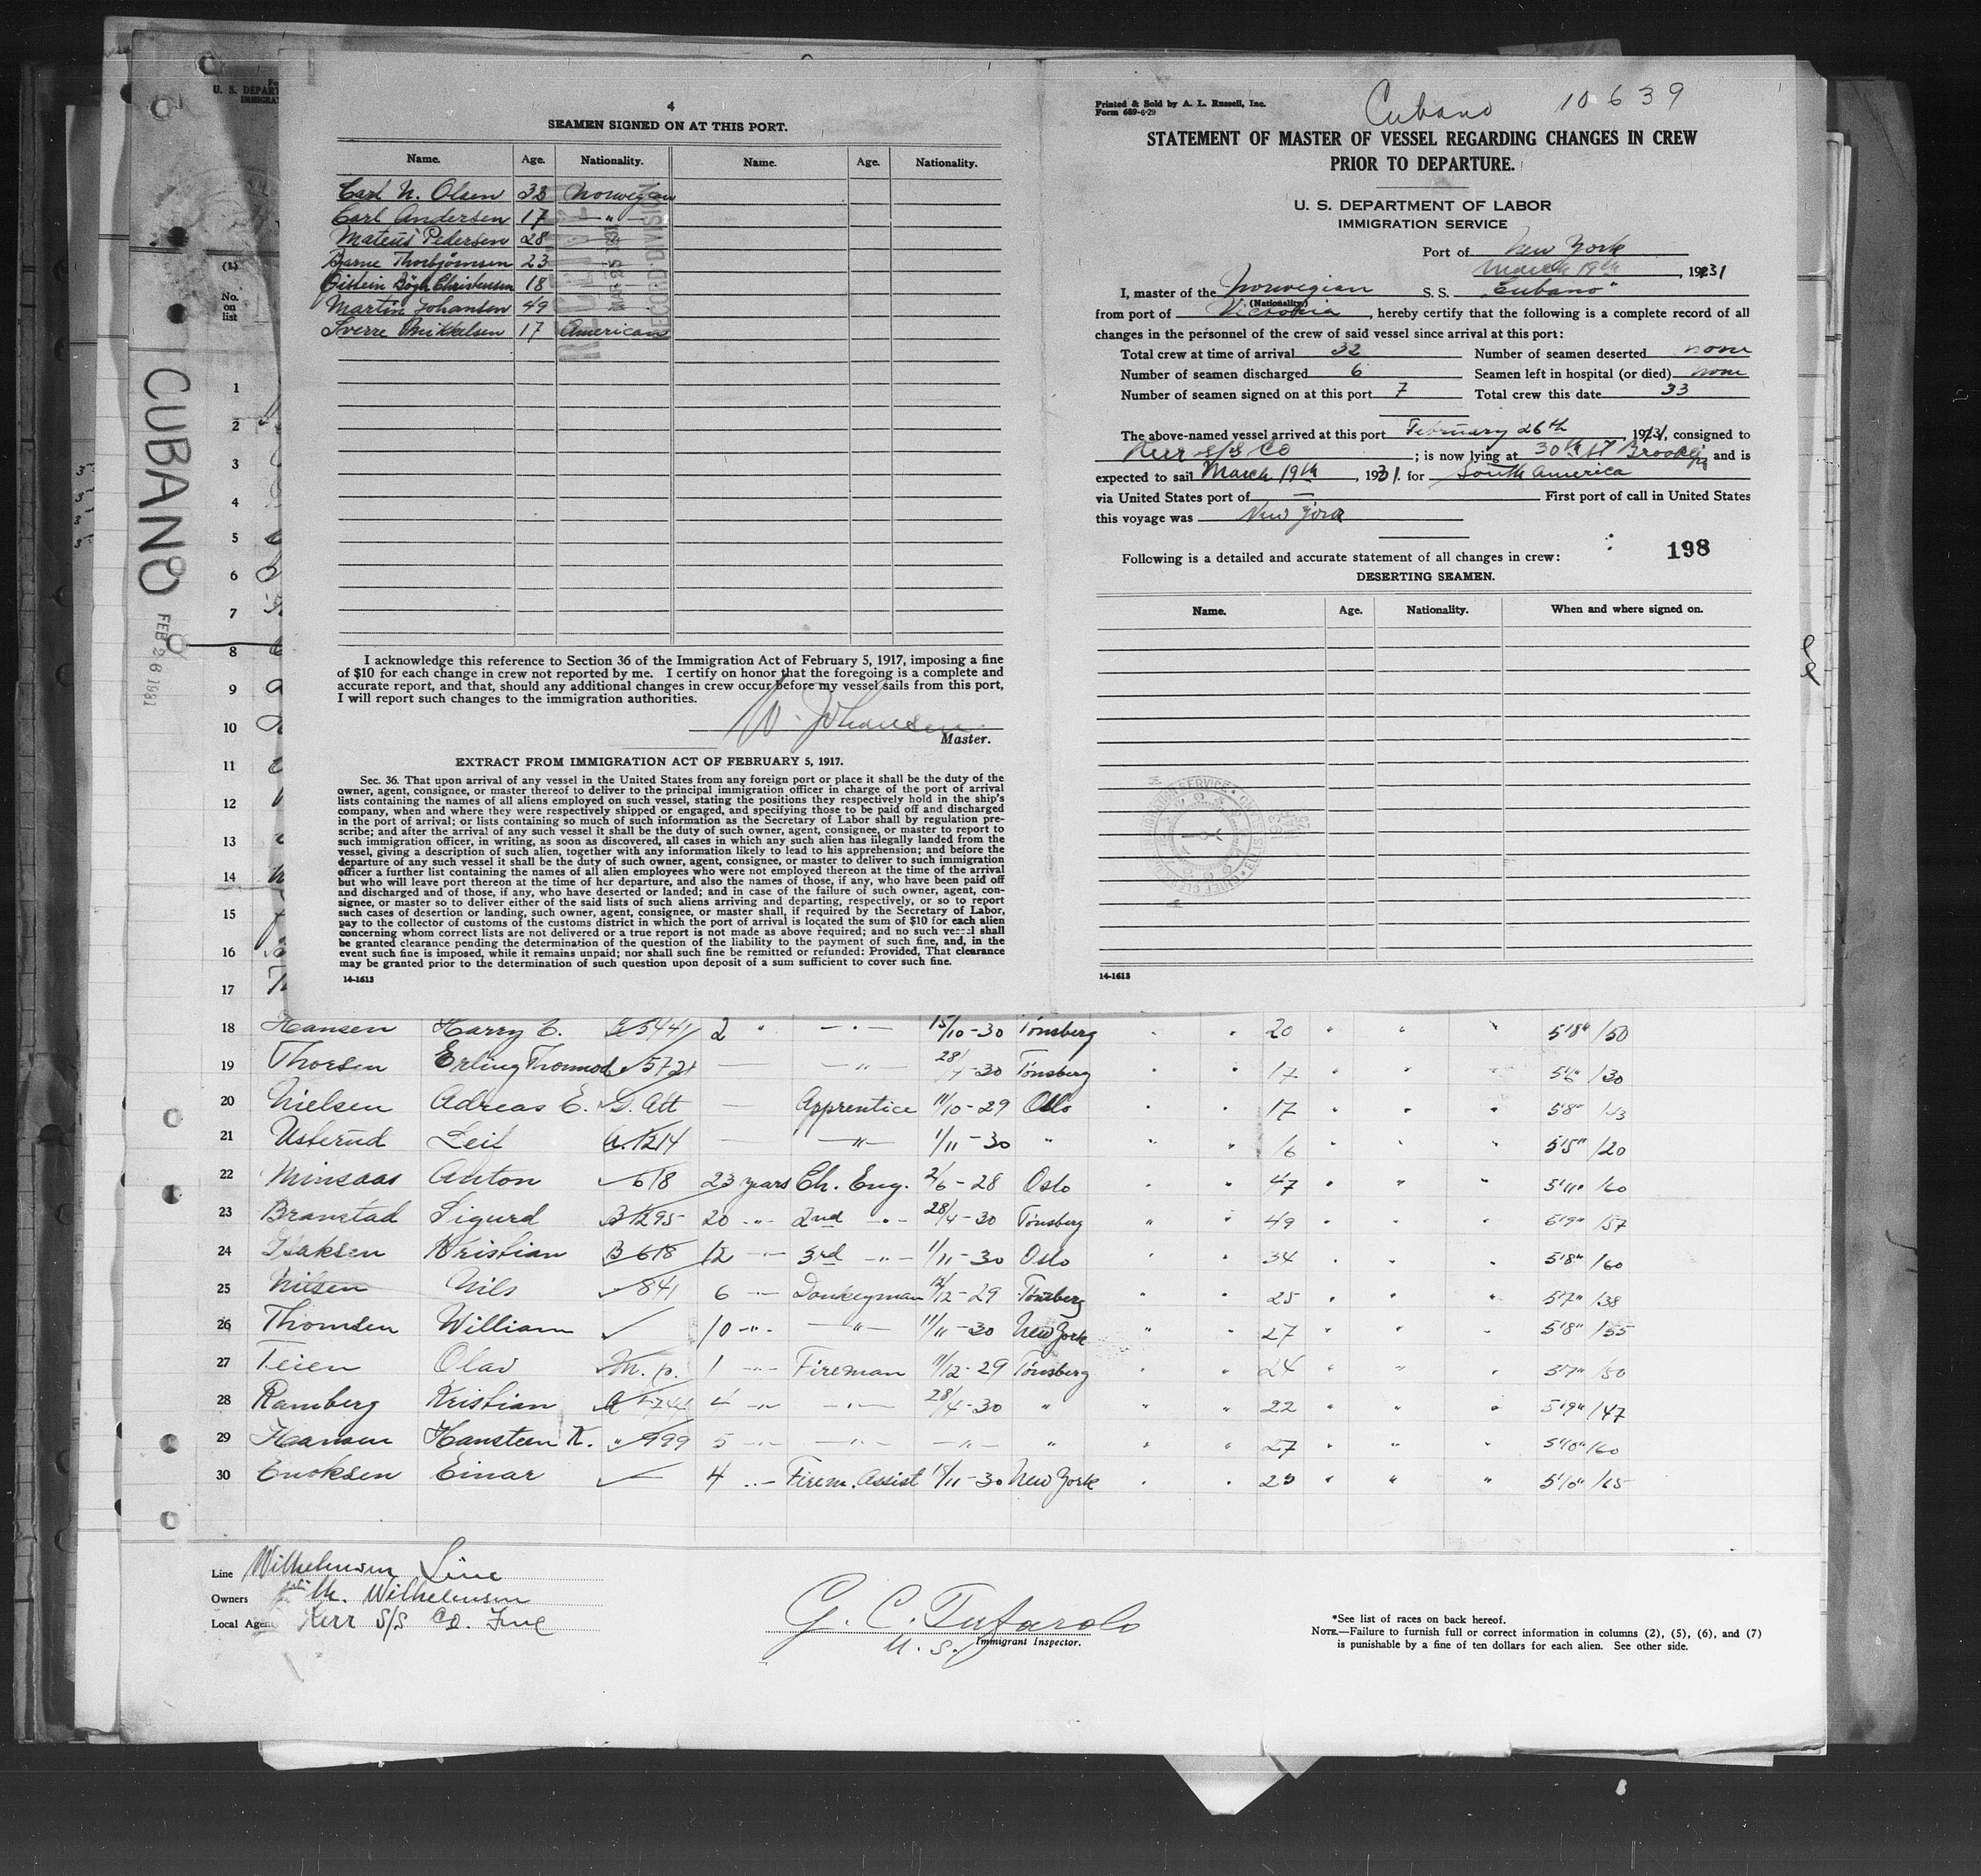 4
SEAMEN SIGNED ON AT THIS PORT.
Name. Age. Nationality. Name. Age. Nationality.
Carl N. Olsen 38 Norwegian
Carl Andersen 17 — " —
Mateus Pedersen 28
Bjarne Thorbjörnsen 23
Eistein Bögh Christensen 18
Martin Johansen 49
Sverre Mikkelsen 17 American
RECEIVED
MAR 25 1931
RECORD DIVISION
I acknowledge this reference to Section 36 of the Immigration Act of February 5, 1917, imposing a fine
of $10 for each change in crew not reported by me. I certify on honor that the foregoing is a complete and
accurate report, and that, should any additional changes in crew occur before my vessel sails from this port,
I will report such changes to the immigration authorities.
Johansen
Master.
EXTRACT FROM IMMIGRATION ACT OF FEBRUARY 5, 1917.
Sec. 36. That upon arrival of any vessel in the United States from any foreign port or place it shall be the duty of the
owner, agent, consignee, or master thereof to deliver to the principal immigration officer in charge of the port of arrival
lists containing the names of all aliens employed on such vessel, stating the positions they respectively hold in the ship's
company, when and where they were respectively shipped or engaged, and specifying those to be paid off and discharged
in the port of arrival; or lists containing so much of such information as the Secretary of Labor shall by regulation pre-
scribe; and after the arrival of any such vessel it shall be the duty of such owner, agent, consignee, or master to report to
such immigration officer, in writing, as soon as discovered, all cases in which any such alien has illegally landed from the
vessel, giving a description of such alien, together with any information likely to lead to his apprehension; and before the
departure of any such vessel it shall be the duty of such owner, agent, consignee, or master to deliver to such immigration
officer a further list containing the names of all alien employees who were not employed thereon at the time of the arrival
but who will leave port thereon at the time of her departure, and also the names of those, if any, who have been paid off
and discharged and of those, if any, who have deserted or landed; and in case of the failure of such owner, agent, con-
signee, or master so to deliver either of the said lists of such aliens arriving and departing, respectively, or so to report
such cases of desertion or landing, such owner, agent, consignee, or master shall, if required by the Secretary of Labor,
pay to the collector of customs of the customs district in which the port of arrival is located the sum of $10 for each alien
concerning whom correct lists are not delivered or a true report is not made as above required; and no such vessel shall
be granted clearance pending the determination of the question of the liability to the payment of such fine, and, in the
event such fine is imposed, while it remains unpaid; nor shall such fine be remitted or refunded: Provided, That clearance
may be granted prior to the determination of such question upon deposit of a sum sufficient to cover such fine.
14-1613
Printed & Sold by A. L. Russell, Inc.
Form 689-6-29
Cubano 10639
STATEMENT OF MASTER OF VESSEL REGARDING CHANGES IN CREW
PRIOR TO DEPARTURE.
U. S. DEPARTMENT OF LABOR
IMMIGRATION SERVICE
Port of New York
March 19th, 1931
I, master of the Norwegian S. S. "Cubano"
(Nationality)
from port of Victoria, hereby certify that the following is a complete record of all
changes in the personnel of the crew of said vessel since arrival at this port:
Total crew at time of arrival 32 Number of seamen deserted none
Number of seamen discharged 6 Seamen left in hospital (or died) none
Number of seamen signed on at this port 7 Total crew this date 33
The above-named vessel arrived at this port February 26th, 1931, consigned to
Kerr S/S Co; is now lying at 30th St Brooklyn and is
expected to sail March 19th, 1931. for South America
via United States port of — First port of call in United States
this voyage was New York
Following is a detailed and accurate statement of all changes in crew:
198
DESERTING SEAMEN.
Name. Age. Nationality. When and where signed on.
14-1613
U. S. DEPART
IMMIGRA
(1)
No.
on
list
CUBANO
FEB 26 1931
1
2
3
4
5
6
7
8
9
10
11
12
13
14
15
16
17
18 Hansen Harry C. 2 " — " — 15/10-30 Tönsberg " " 20 " " " 5'8" 150
19 Thorsen Erling Thormod 572 — — " — 28/4-30 Tönsberg " " 17 " " " 5'6" 130
20 Nielsen Adreas E. — Apprentice 11/10-29 Oslo " " 17 " " " 5'8"
21 Usterud Leif A.1214 — — " — 1/11-30 " " " 5'5" 120
22 Minsaas Anton 618 23 years Ch. Eng. 2/6-28 Oslo " " 47 " " " 5'11" 160
23 Branstad Sigurd B1295 20 — " — 2nd — " — 28/4-30 Tönsberg " " 49 " " " 157
24 Isaksen Kristian B618 12 — " — 3rd — " — 1/11-30 Oslo " " 34 " " " 5'8" 160
25 Nilsen Nils 841 6 — " — Donkeyman 12/12-29 Tönsberg " " 25 " " " 5'7" 138
26 Thomsen William 10 — " — — " — 11/11-30 New York " " 27 " " " 5'8" 155
27 Teien Olav M. p. 1 — " — Fireman 11/12-29 Tönsberg " " 24 " " " 5'7" 150
28 Ramberg Kristian 4 — " — — " — 28/4-30 " " " 22 " " " 5'9" 147
29 Hansen Hansteen K. " 999 5 — " — — " — — " — " " " 27 " " " 5'10" 160
30 Enoksen Einar 4 — " — Firem. Assist 15/11-30 New York " " 25 " " " 5'10" 165
Line Wilhelmsen Line
Owners Wilh. Wilhelmsen
Local Agents Kerr S/S Co. Inc
G. C. Tufarolo
U. S. Immigrant Inspector.
*See list of races on back hereof.
NOTE.—Failure to furnish full or correct information in columns (2), (5), (6), and (7)
is punishable by a fine of ten dollars for each alien. See other side.